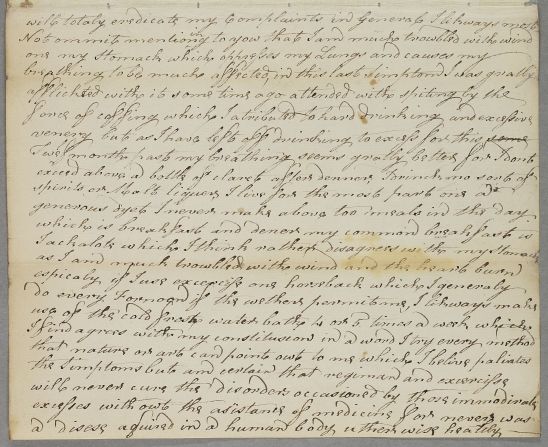 will totaly eredicate my Complaints in General I likways must
Not ommit mentioning to yow that I am much trowbled with wind
one my Stomack which oppreses my Lungs and causes my
breathing to be much affected in this last simptom I was gratly
afflickted with it some time ago attended with spiting by the
force of coffing which I atributed to hard drinking and excessive
venery but as I have left off drinking to excess for this some
Twel months past my breathing seems gratly better for I dont
exceed above a bottle of claret after denner I drinck no sort of
spirits or Malt liquer I live for the most part one a
generous dyet I never make above too meals in the day
which is breakfast and dener my common breakfast is
Jackalate which I think rather disagrees with my stomack
as I am much trowbled with wind and the heart burn
espicaly if I use excercise one horseback which I generaly
do every Fornoon if the wether permitane, I likways make
use of the cold fresh water bath 4 or 5 times a week which
I find agrees with my constitusion in a word I try every method
that nature or art can point owt to me which I belive paliates
the simptoms but am certain that regiman and exercise
will never cure the disorders occastoned by those immodirate
excesses with owt the asistance of medicine for never was
a disese aquired in a human body utherwise healtly